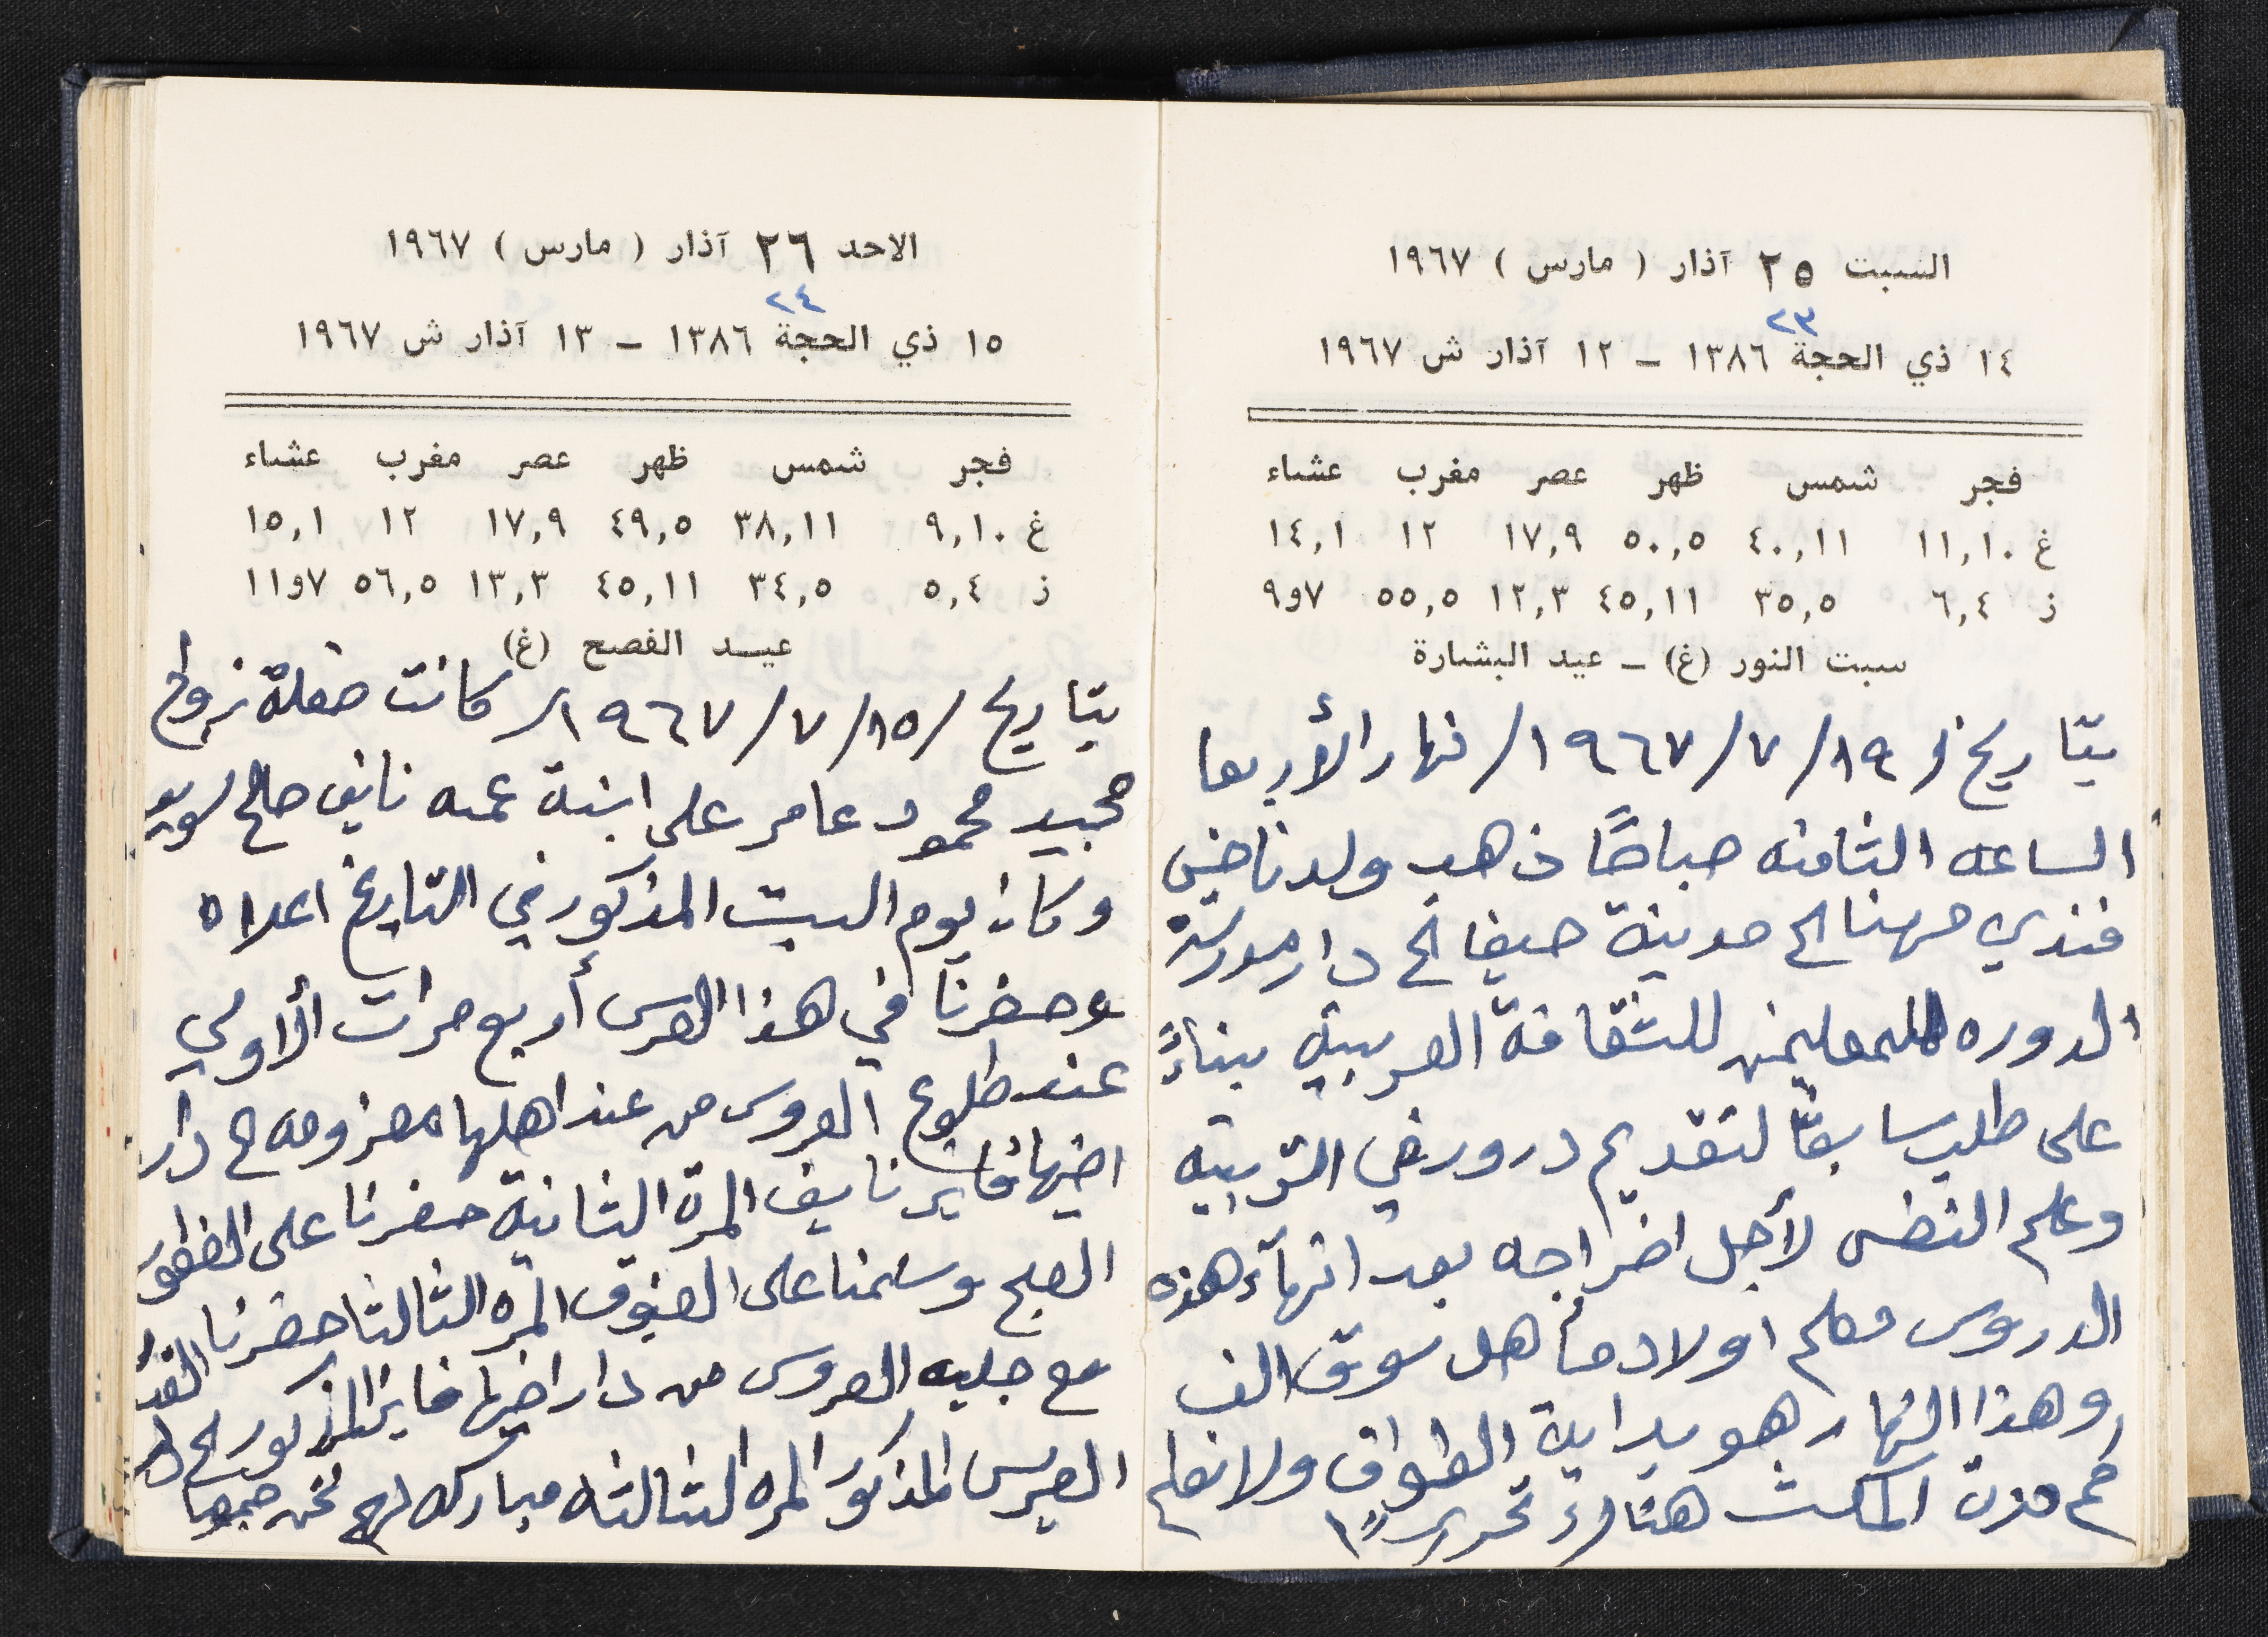 السبت ٢٥ آذار ( مارس ) ١٩٦٧
٢٣
١٤ ذي الحجة ١٣٨٦ – ١٢ آذار ش ١٩٦٧
فجر شمس ظهر عصر مغرب عشاء
غ ١١,١٠ ٤٠,١١ ٥٠,٥ ١٧,٩ ١٢ ١٤,١
ز ٦,٤ ٣٥,٥ ٤٥,١١ ١٢,٣ ٥٥,٥ ٧و٩
سبت النور (غ) – عيد البشارة
بتاريخ /١٩/ ٧/ ١٩٦٧/ نهار الأربعا
الساعه الثامنه صباحًا ذهب ولدنا
فندي من هنا الى مدينة حيفا الى دار
الدوره للمعلمين للثقافة العربية بناءً
على طلب سابقًا لتقديم دروز في التربية
وعلم النفس لأجل اخراجه بعد انهآء هذه
الدروس معلم اولاد ما هل سوق الف
وهذا النهار هو بداية الطواف ولا نعلم
كم مدة المكث هناك تحريرًا
الاحد ٢٦ آذار ( مارس ) ١٩٦٧
٢٤
١٥ ذي الحجة ١٣٨٦ – ١٣ آذار ش ١٩٦٧
فجر شمس ظهر عصر مغرب عشاء
غ ٩,١٠ ٣٨,١١ ٤٩,٥ ١٧,٩ ١٢ ١٥,١
ز ٥,٤ ٣٤,٥ ٤٥,١١ ١٣,٣ ٥٦,٥ ٧و١١
عيـد الفصح (غ)
بتاريخ /١٥/ ٧/ ١٩٦٧/ كانت حفلة زواج
مجيد محمود عامر على ابنة عمه نايف صالح
وكان يوم السبت المذكور في التاريخ اعلاه
وحضرنا في هذا العرس أربع مرات الأولى
عند طلوع العروس من عند اهلها معزومه الى دار
اخيها فايز نايف المرة الثانية حضرنا على الفطور
الصبح وسلمنا على الضيوف المره الثالثا حضرنا الغدا
مع جليه العروس من دار اخيها فايز المذكور الى دار
العريس المذكور المره الثالثه مباركه لهم نحن جميعا